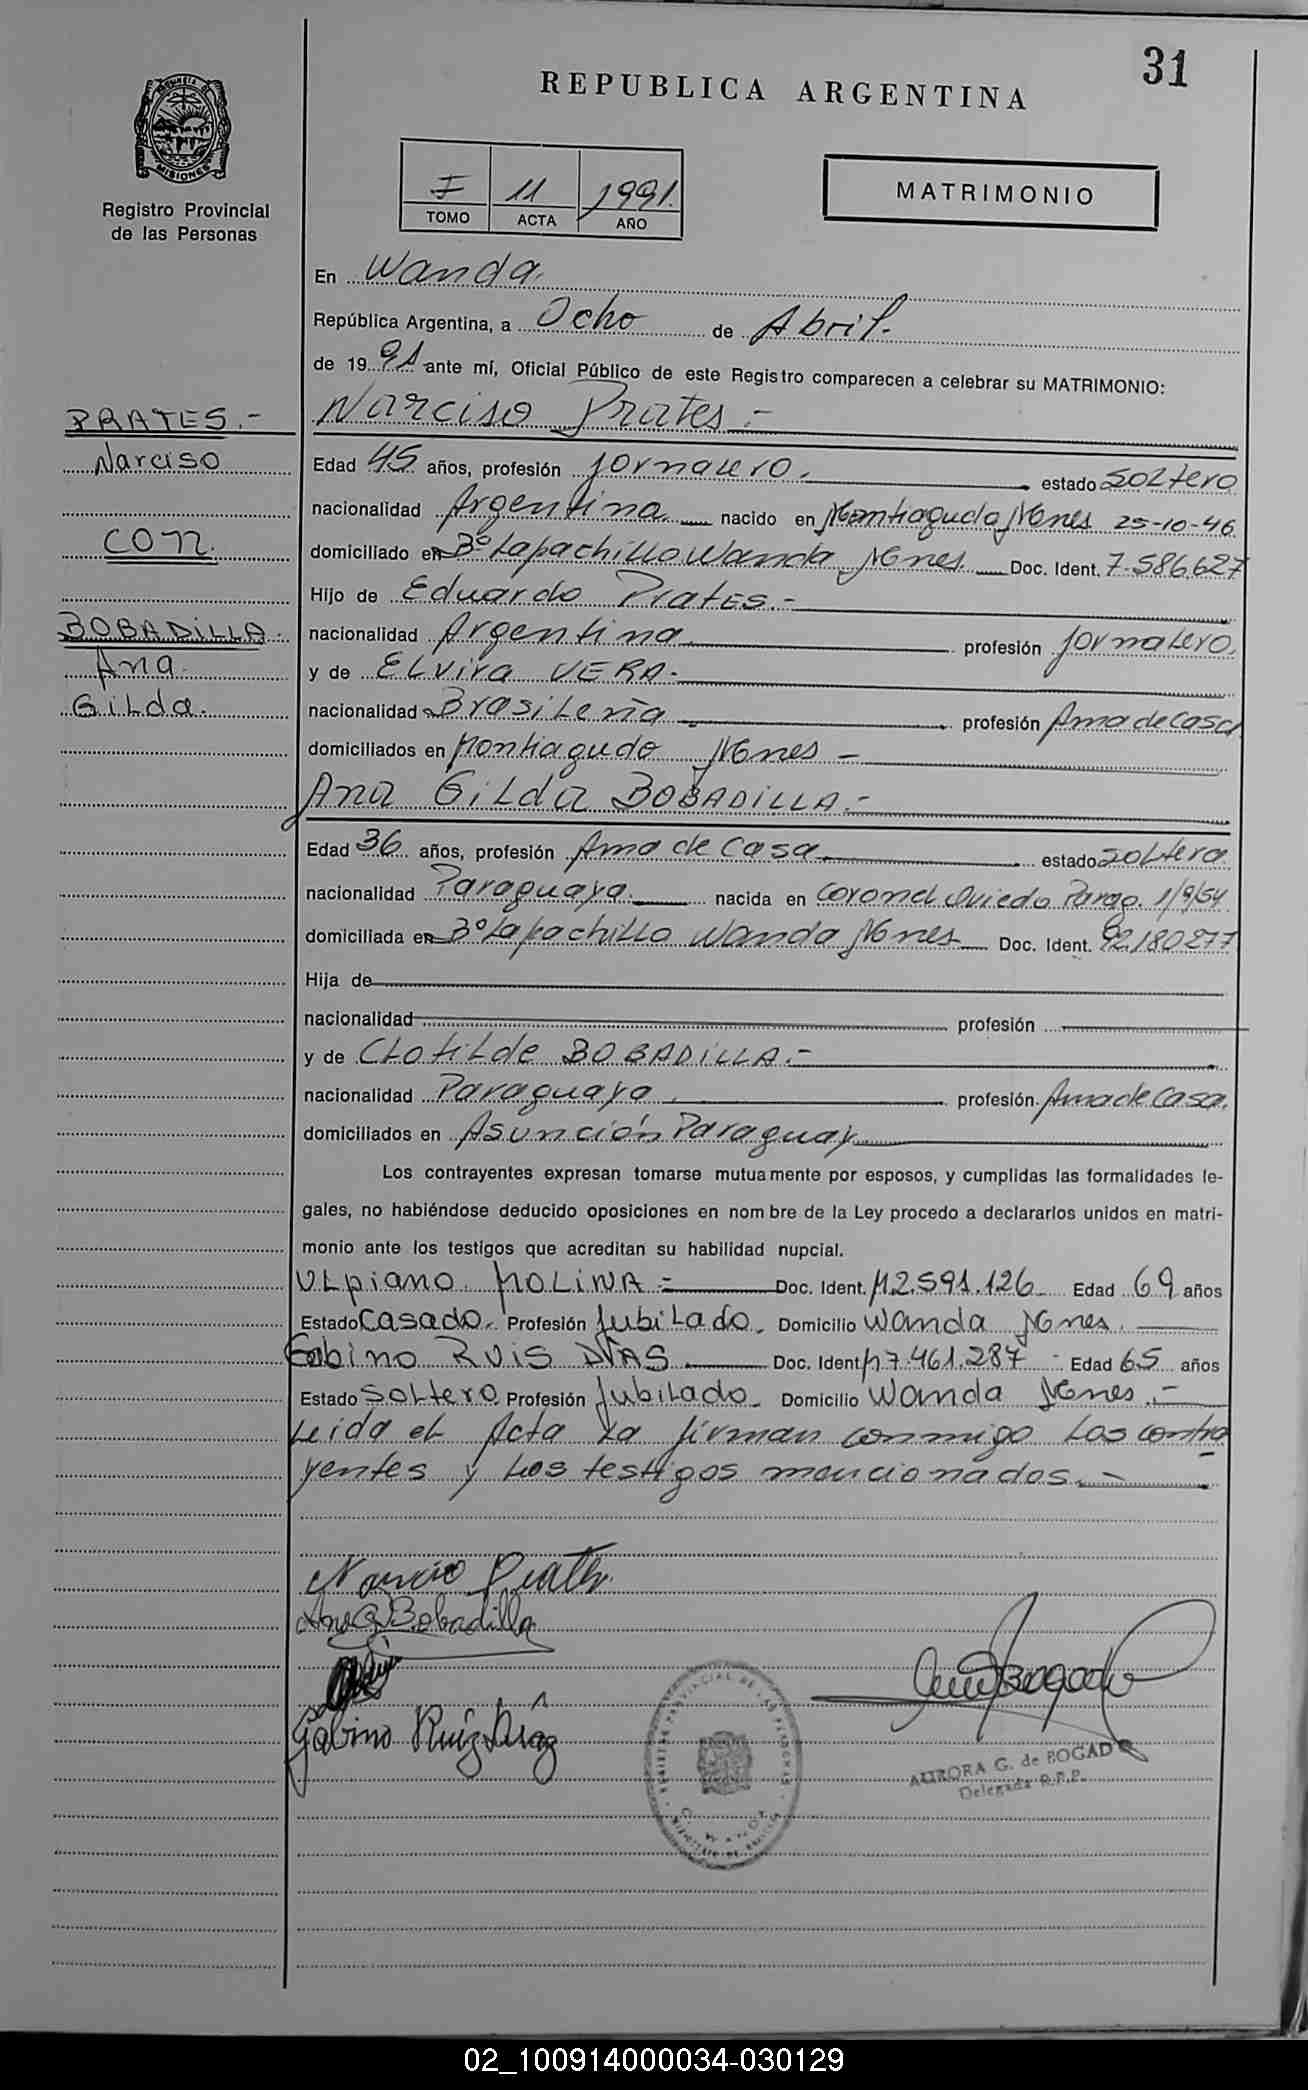 31
REPUBLICA ARGENTINA
MISIONES
Registro Provincial
de las Personas
I 11 1991.
TOMO ACTA AÑO
MATRIMONIO
En Wanda.
República Argentina, a Ocho de Abril.-
de 1991 ante mí, Oficial Público de este Registro comparecen a celebrar su MATRIMONIO:
PRATES.-
Narciso
CON.
BOBADILLA.-
Ana
Gilda.
Narciso Prates.-
Edad 45 años, profesión Jornalero. estado Soltero
nacionalidad Argentina. nacido en Montiagudo Mnes 25-10-46
domiciliado en Bº Lapachillo Wanda Mnes Doc. Ident. 7.586627
Hijo de Eduardo Prates.-
nacionalidad Argentina profesión Jornalero.
y de Elvira VERA.-
nacionalidad Brasileña profesión Ama de Casa
domiciliados en Montiagudo Mnes -
Ana Gilda BOBADILLA.-
Edad 36 años, profesión Ama de Casa estado Soltera
nacionalidad Paraguaya. nacida en Coronel Oviedo Parag. 1/9/54
domiciliada en Bº Lapachillo Wanda Mnes Doc. Ident. 92.180277
Hija de
nacionalidad profesión
y de Clotilde BOBADILLA.-
nacionalidad Paraguaya. profesión Ama de Casa.
domiciliados en Asunción Paraguay
Los contrayentes expresan tomarse mutuamente por esposos, y cumplidas las formalidades le-
gales, no habiéndose deducido oposiciones en nombre de la Ley procedo a declararlos unidos en matri-
monio ante los testigos que acreditan su habilidad nupcial.
Ulpiano MOLINA = Doc. Ident. M2.591.126 Edad 69 años
Estado Casado. Profesión Jubilado. Domicilio Wanda Mnes.
Gabino RUIS DIAS Doc. Ident M7.461.287 - Edad 65 años
Estado Soltero Profesión Jubilado. Domicilio Wanda Mnes.-
Leida el Acta la firman conmigo los contra
yentes y los testigos mencionados.-
Narciso Prates.
Ana G Bobadilla
Gabino Ruiz Diáz
REGISTRO PROVINCIAL DE LAS PERSONAS
WANDA
AURORA G. de BOGADO
Delegada R.P.P.
02_100914000034-030129